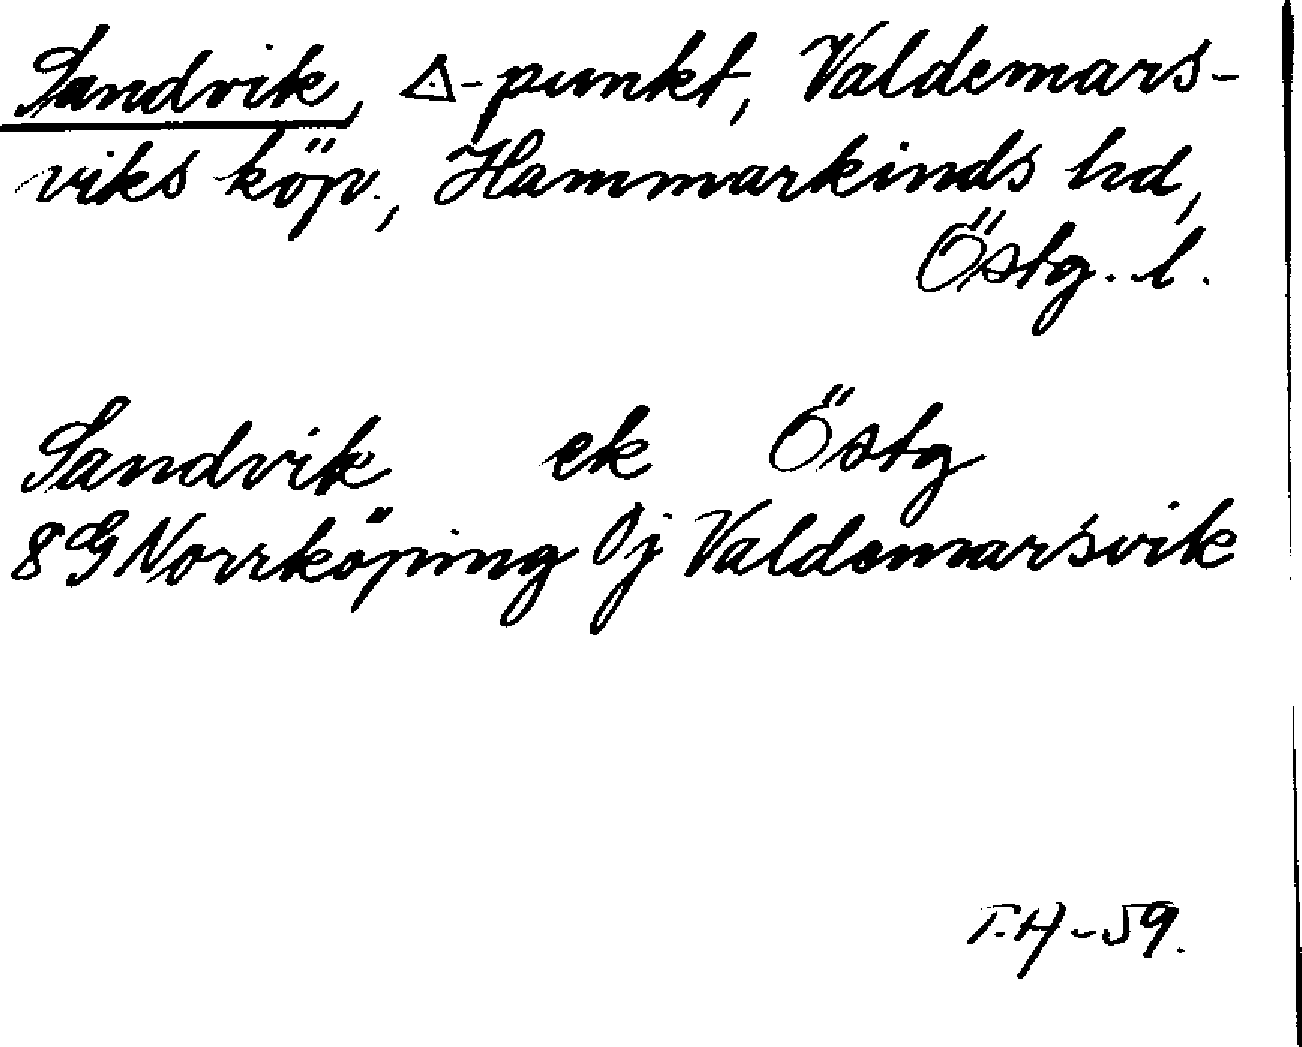 Sandvik, △-punkt, Valdemars-
viks köp., Hammarkinds hd,
Östg. l.
Sandvik ek Östg
8G Norrköping 0j Valdemarsvik
T.H-59.